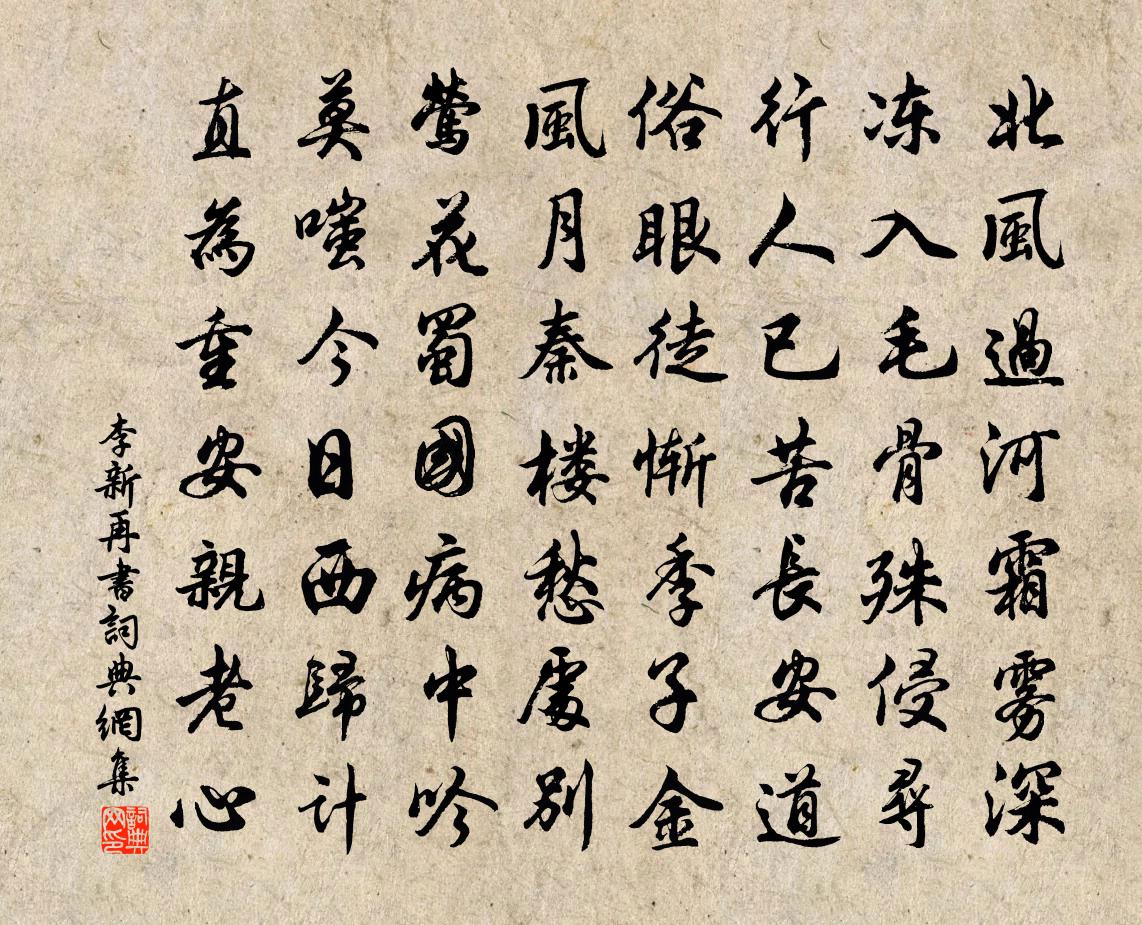 北風過河霜雾深
冻入毛骨殊侵尋
行人已苦長安道
俗眼徒慚季子金
風月秦楼愁處别
鶯花蜀國病中吟
莫嗤今日西歸计
直為重安親老心
李新再書詞典網集
詞典网印